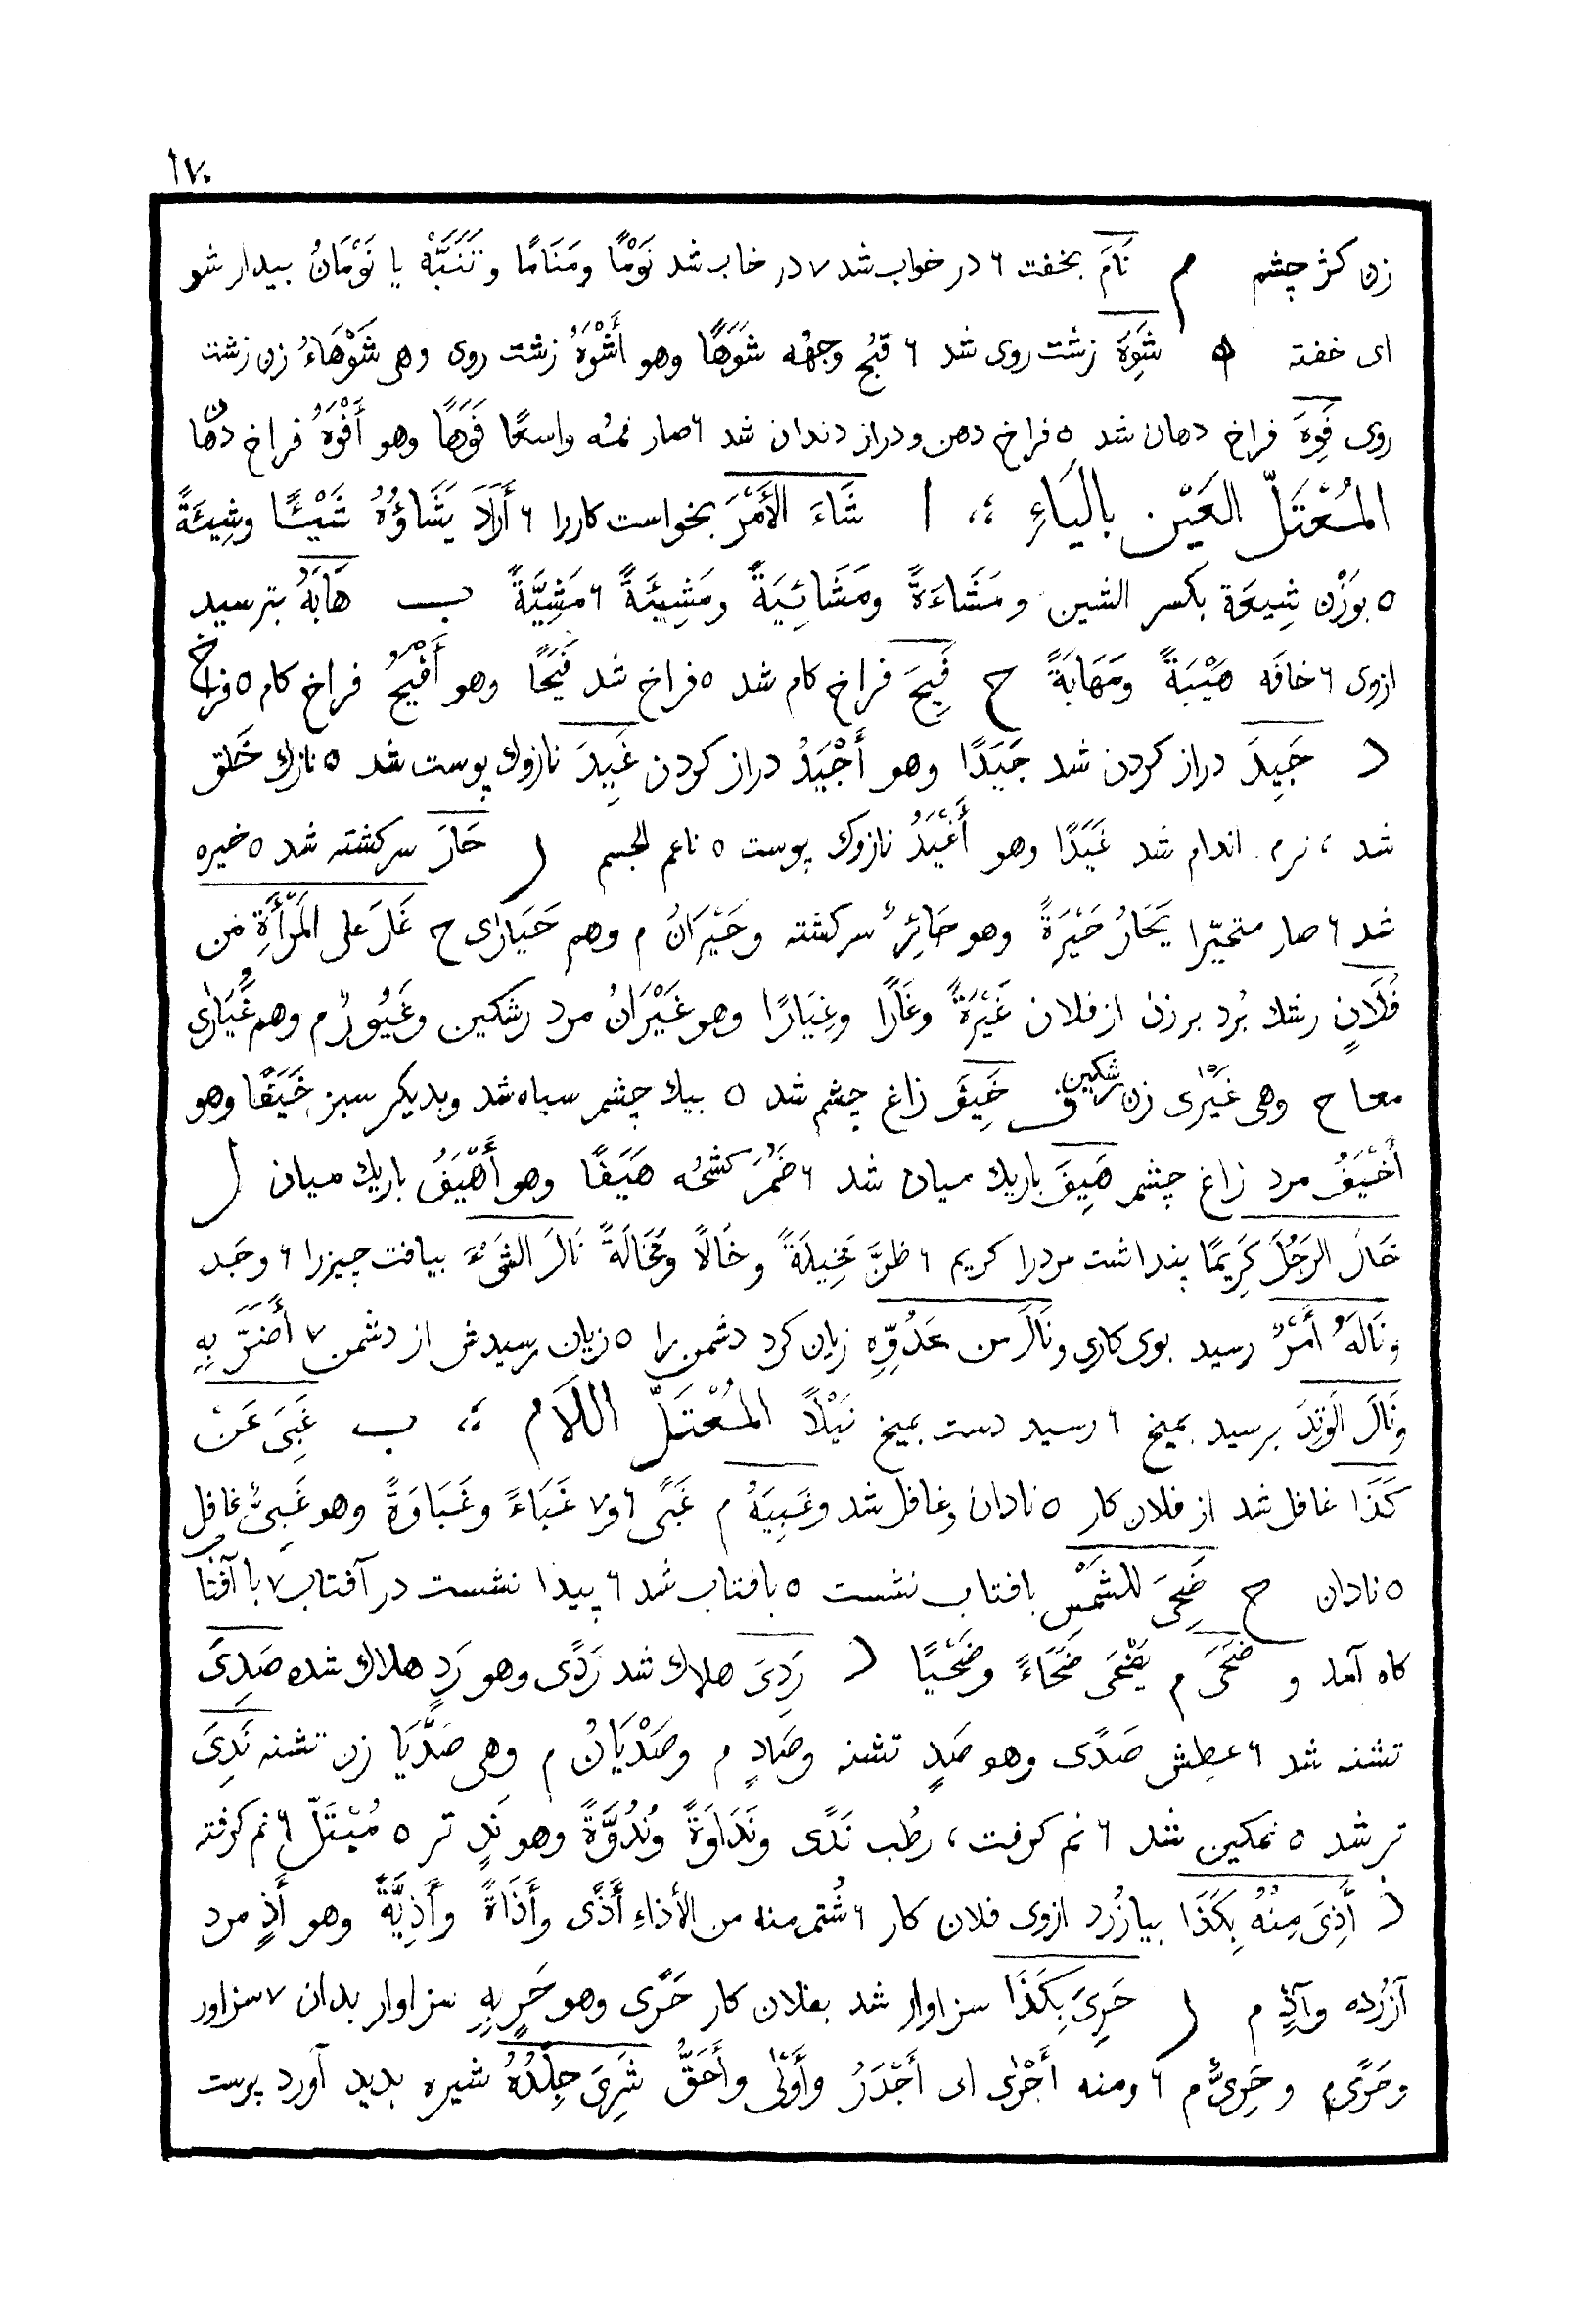 ١٧٠
زن کژ چشم م نَامَ بخفت ٦ در خواب شد ٧ در خاب شد نَوْمًا ومَنَامًا وتَنَبَّهْ يا نَوْمَانُ بيدار شو
ای خفته ه شَوِهَ زشت روی شد ٦ قبُح وجهُه شَوَهًا وهو أَشْوَهُ زشت روی وهی شَوْهَاءُ زن زشت
روی فَوِهَ فراخ دهان شد ٥ فراخ دهن ودراز دندان شد ٦ صار فمُه واسعًا فَوَهًا وهو أَفْوَهُ فراخ دهان
المُعْتَلّ العَيْن بالْيَاءِ ؞ ا شَاءَ الأَمْرَ بخواست کاررا ٦ أَرَادَ يَشَاؤُهُ شَيْئًا وشِيئَةً
٥ بوَزْن شِيعَة بکسر الشين ومَشَاءَةً ومَشَائِيَةً ومَشِيئَةً ٦ مَشِيَّةً ب هَابَهُ بترسيد
ازوی ٦ خافَه هَيْبَةً ومَهَابَةً ح فَيِحَ فراخ کام شد ٥ فراخ شد فَيَحًا وهو أَفْيَحُ فراخ کام ٥ فراخ
د جَيِدَ دراز کردن شد جَيَدًا وهو أَجْيَدُ دراز کردن غَيِدَ نازوك پوست شد ٥ نازك خَلق
شد ، نرم اندام شد غَيَدًا وهو أَغْيَدُ نازوك پوست ٥ ناعم الجسم ر حَارَ سرکشته شد ٥ خيره
شد ٦ صار متحيّرا يَحَارُ حَيْرَةً وهو حَائِرٌ سرکشته وحَيْرَانُ م وهم حَيَارٰی ح غَارَ علی المَرْأَةِ من
فُلَانٍ رشك بُرد بر زن از فلان غَيْرَةً وغَارًا وغِيَارًا وهو غَيْرَانُ مرد رشکين وغَيُورٌ م وهم غُيَارٰی
معا ح وهی غَيْرٰی زن رشکين ف خَيِفَ زاغ چشم شد ٥ بيك چشم سياه شد وبديکر سبز خَيَفًا وهو
أَخْيَفُ مرد زاغ چشم هَيِفَ باريك ميان شد ٦ ضَمُرَ کشحُه هَيَفًا وهو أَهْيَفُ باريك ميان ل
خَالَ الرَجُلَ كَرِيمًا پنداشت مردرا کريم ٦ ظنَّ مَخِيلَةً وخَالًا ومَخَالَةً نَالَ الشَیْءَ بيافت چيزرا ٦ وجَد
ونَالَهُ أَمْرٌ رسيد بوی کاری ونَالَ من عَدُوِّهِ زيان کرد دشمن را ٥ زيان رسيدش از دشمن ٧ أَضَرَّ بِهِ
ونَالَ الوَتِدَ برسيد بميخ ٦ رسيد دست بميخ نَيْلًا المُعْتَلّ اللَام ؞ ب غَبِیَ عَنْ
كَذَا غافل شد از فلان کار ٥ نادان وغافل شد وغَبِيَهُ م غَبًی ٦ و ٧ غَبَاءً وغَبَاوَةً وهو غَبِیٌّ غافل
٥ نادان ح ضَحِیَ للشَمْسِ بافتاب نشست ٥ بافتاب شد ٦ پيدا نشست در آفتاب ٧ با آفتا
کاه آمد و ضَحَی م يَضْحَی ضَحَاءً وضَحْيًا د رَدِیَ هلاك شد رَدًی وهو رَدٍ هلاك شده صَدِیَ
تشنه شد ٦ عطِش صَدًی وهو صَدٍ تشنه وصَادٍ م وصَدْيَانُ م وهی صَدْيَا زن تشنه نَدِیَ
تر شد ٥ نمکين شد ٦ نم کرفت ، رطُب نَدًی ونَدَاوَةً ونُدُوَّةً وهو نَدٍ تر ٥ مُبْتَلّ ٦ نم کرفته
ذ أَذِیَ مِنْهُ بِكَذَا بيازُرد ازوی فلان کار ٦ شُتم منه من الأذاء أَذًی وأَذَاةً وأَذِيَّةً وهو أَذٍ مرد
آزرده وآذٍ م ر حَرِیَ بِكَذَا سزاوار شد بفلان کار حَرًی وهو حَرٍ بِهِ سزاوار بدان ٧ سزاور
وحَرًی م وحَرِیٌّ م ٦ ومنه أَحْرٰی ای أَجْدَرُ وأَوْلٰی وأَحَقُّ شَرِیَ جِلْدُهُ شيره بديد آورد پوست